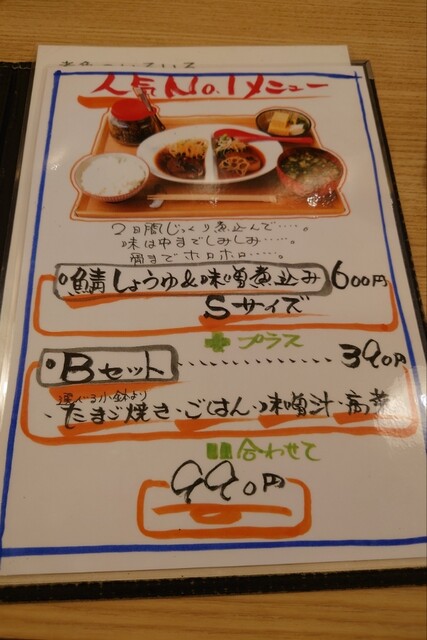 人気No.1メニュー
2日間じっくり煮込んで……。
味は中までしみしみ……。
骨までホロホロ……。
鯖しょうゆ&味噌煮込み 600円
Sサイズ
プラス
Bセット ………… 390円
選べる小鉢より
たまご焼き・ごはん・味噌汁・高菜
合わせて
990円